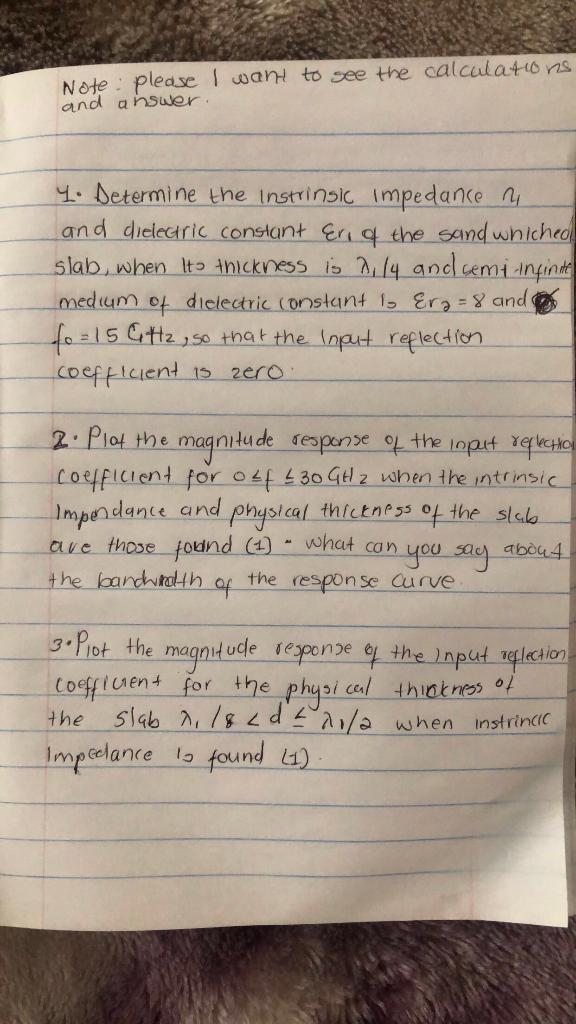 Note : please I want to see the calculations
and answer.
1. Determine the Instrinsic Impedance η1
and dielectric constant Er1 of the sandwhiched
slab, when Its thickness is λ1/4 and semi-Infinite
medium of dielectric constant Is Er2 = 8 and
fo = 15 GHz, so that the Input reflection
coefficient is zero.
2. Plot the magnitude response of the input reflection
coefficient for 0≤f≤30 GHz when the intrinsic
Impendance and physical thickness of the slab
are those found (1) - what can you say about
the bandwidth of the response curve.
3. Plot the magnitude response of the Input reflection
coefficient for the physical thickness of
the slab λ1/8 < d ≤ λ1/2 when instrincic
Impedance Is found (1).